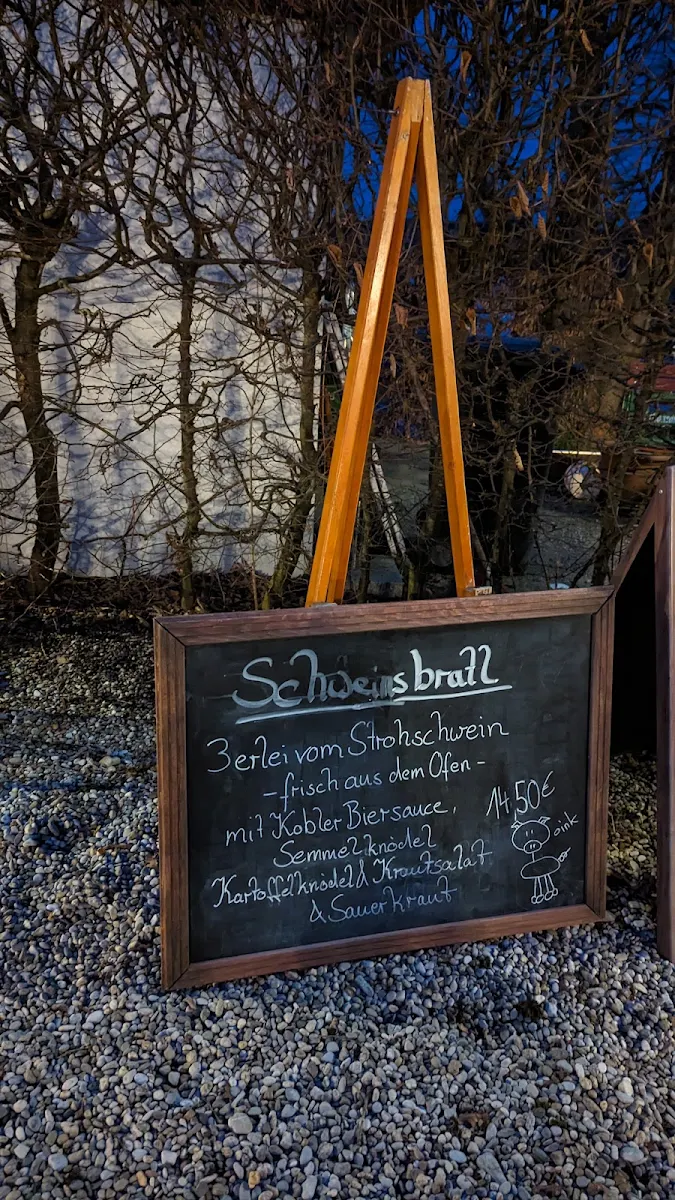 Schweinsbratl
3erlei vom Strohschwein
- frisch aus dem Ofen -
mit Kobler Biersauce,
14,50€
oink
Semmelknödel
Kartoffelknödel & Krautsalat
& Sauerkraut